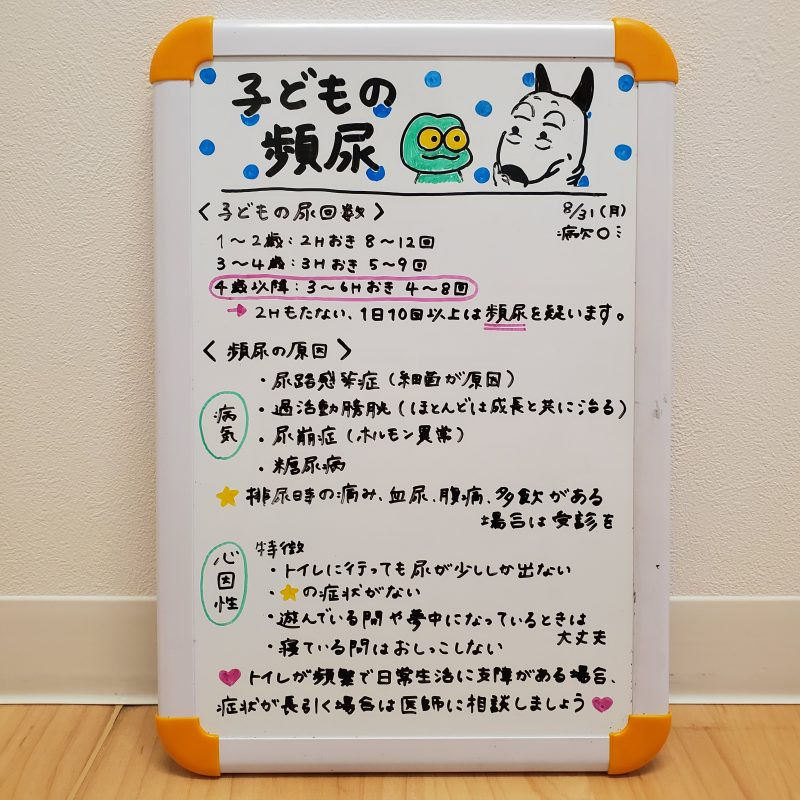 子どもの
頻尿
8/31(月)
病欠0ミ
〈子どもの尿回数〉
1〜2歳:2Hおき 8〜12回
3〜4歳:3Hおき 5〜9回
4歳以降:3〜6Hおき 4〜8回
→ 2Hもたない、1日10回以上は頻尿を疑います。
〈頻尿の原因〉
病気
・尿路感染症(細菌が原因)
・過活動膀胱(ほとんどは成長と共に治る)
・尿崩症(ホルモン異常)
・糖尿病
★排尿時の痛み、血尿、腹痛、多飲がある
場合は受診を
心因性
特徴
・トイレに行っても尿が少ししか出ない
・★の症状がない
・遊んでいる間や夢中になっているときは
大丈夫
・寝ている間はおしっこしない
♥トイレが頻繁で日常生活に支障がある場合、
症状が長引く場合は医師に相談しましょう♥